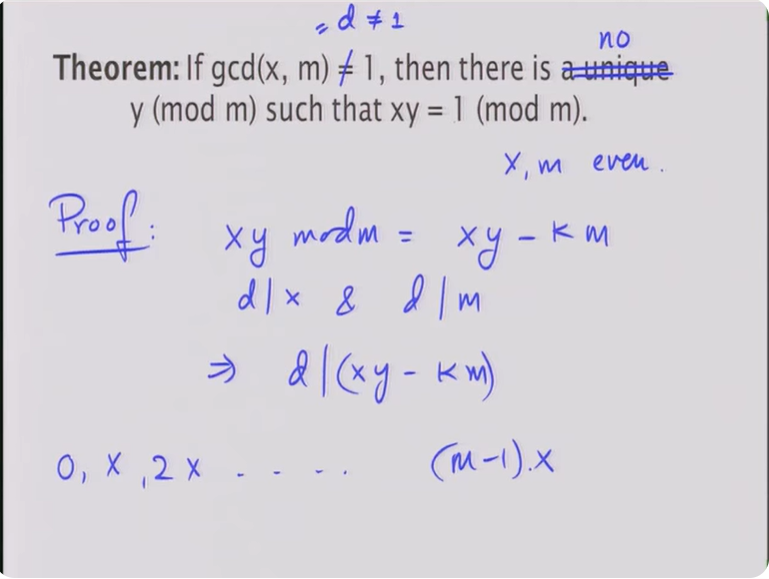 = d ≠ 1
no
Theorem: If gcd(x, m) ≠ 1, then there is a unique
y (mod m) such that xy = 1 (mod m).
x, m even.
Proof: xy mod m = xy - km
d|x & d|m
⇒ d|(xy - km)
0, x, 2x - - - . (m-1).x